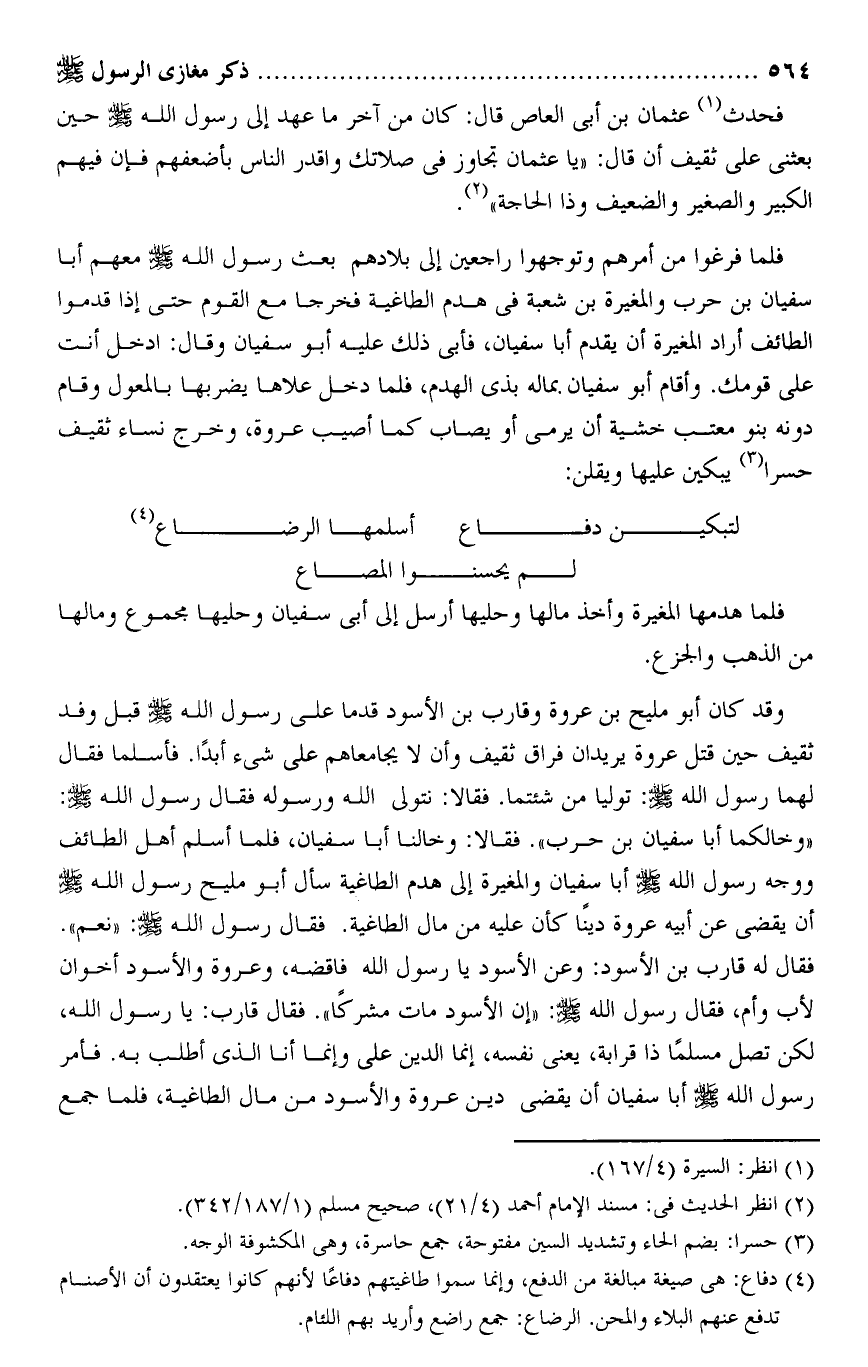 ٥٦٤ ............................................................ ذكر مغازى الرسول ﷺ
فحدث(١) عثمان بن أبى العاص قال: كان من آخر ما عهد إلى رسول اللـه ﷺ حـين
بعثنى على ثقيف أن قال: «يا عثمان تجاوز فى صلاتك واقدر الناس بأضعفهم فـإن فيهـم
الكبير والصغير والضعيف وذا الحاجة»(٢).
فلما فرغوا من أمرهم وتوجهوا راجعين إلى بلادهم بعـث رسـول اللـه ﷺ معهـم أبـا
سفيان بن حرب والمغيرة بن شعبة فى هـدم الطاغيـة فخرجـا مـع القـوم حتـى إذا قدمـوا
الطائف أراد المغيرة أن يقدم أبا سفيان، فأبى ذلك عليـه أبـو سـفيان وقـال: ادخـل أنـت
على قومك. وأقام أبو سفيان بماله بذى الهدم، فلما دخـل علاهـا يضربهـا بـالمعول وقـام
دونه بنو معتـب خشـية أن يرمـى أو يصـاب كمـا أصيـب عـروة، وخـرج نسـاء ثقيـف
حسرا(٣) يبكين عليها ويقلن:
لتبكيـــــن دفـــــاع أسلمهـــا الرضـــــــاع(٤)
لـــم يحسنـــوا المصـــاع
فلما هدمها المغيرة وأخذ مالها وحليها أرسل إلى أبى سـفيان وحليهـا مجمـوع ومالهـا
من الذهب والجزع.
وقد كان أبو مليح بن عروة وقارب بن الأسود قدما علـى رسـول اللـه ﷺ قبـل وفـد
ثقيف حين قتل عروة يريدان فراق ثقيف وأن لا يجامعاهم على شىء أبدًا. فأسـلما فقـال
لهما رسول الله ﷺ: توليا من شئتما. فقالا: نتولى اللـه ورسـوله فقـال رسـول اللـه ﷺ:
«وخالكما أبا سفيان بن حـرب». فقـالا: وخالنـا أبـا سـفيان، فلمـا أسـلم أهـل الطائف
ووجه رسول الله ﷺ أبا سفيان والمغيرة إلى هدم الطاغية سأل أبـو مليـح رسـول اللـه ﷺ
أن يقضى عن أبيه عروة دينًا كأن عليه من مال الطاغية. فقـال رسـول اللـه ﷺ: «نعـم».
فقال له قارب بن الأسود: وعن الأسود يا رسول الله فاقضـه، وعـروة والأسـود أخـوان
لأب وأم، فقال رسول الله ﷺ: «إن الأسود مات مشركًا». فقال قارب: يا رسـول اللـه،
لكن تصل مسلمًا ذا قرابة، يعنى نفسه، إنما الدين على وإنمـا أنـا الـذى أطلـب بـه. فـأمر
رسول الله ﷺ أبا سفيان أن يقضى ديـن عـروة والأسـود مـن مـال الطاغيـة، فلمـا جمع
(١) انظر: السيرة (١٦٧/٤).
(٢) انظر الحديث فى: مسند الإمام أحمد (٢١/٤)، صحيح مسلم (٣٤٢/١٨٧/١).
(٣) حسرا: بضم الحاء وتشديد السين مفتوحة، جمع حاسرة، وهى المكشوفة الوجه.
(٤) دفاع: هى صيغة مبالغة من الدفع، وإنما سموا طاغيتهم دفاعًا لأنهم كانوا يعتقدون أن الأصنـام
تدفع عنهم البلاء والمحن. الرضاع: جمع راضع وأريد بهم اللئام.